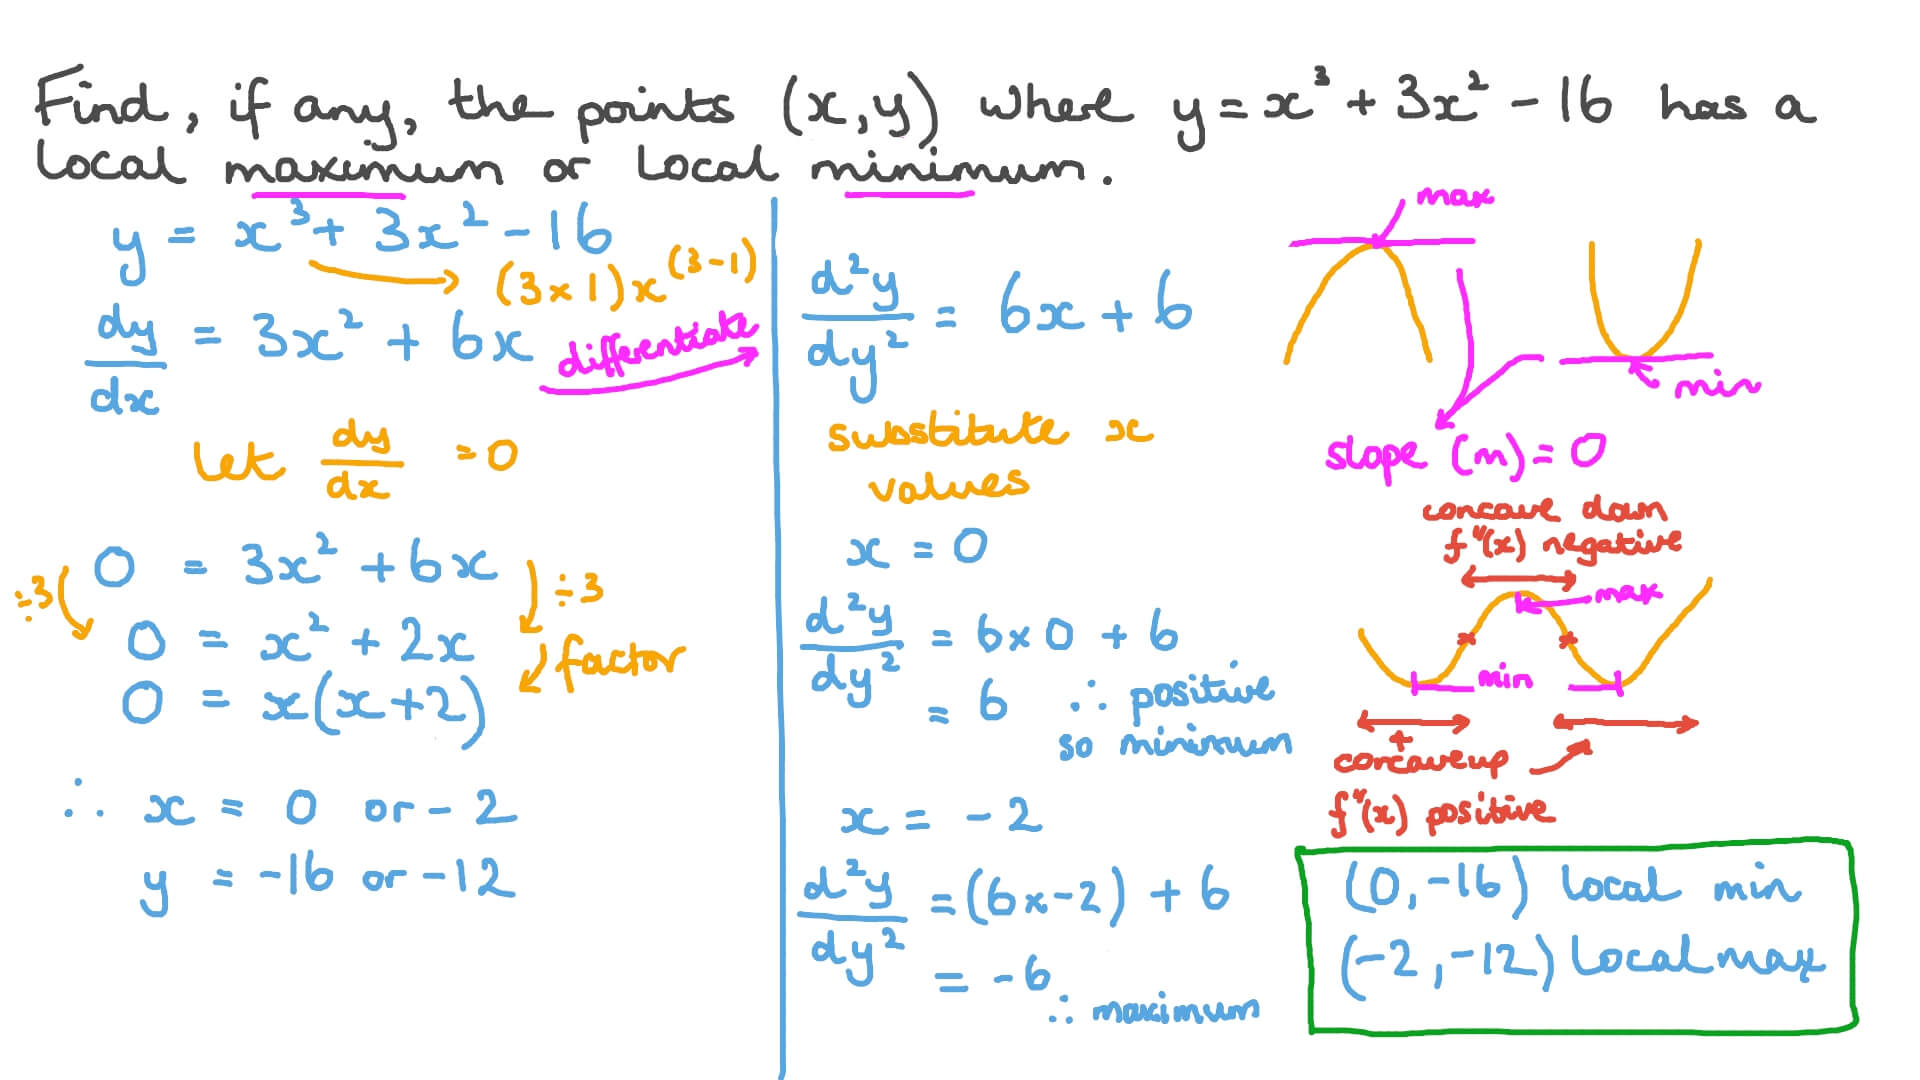 Find, if any, the points (x,y) where y = x³ + 3x² - 16 has a
local maximum or local minimum.
y = x³ + 3x² - 16
(3×1)x^(3-1)
dy/dx = 3x² + 6x
differentiate
Let dy/dx = 0
0 = 3x² + 6x
÷3
÷3
0 = x² + 2x
factor
0 = x(x+2)
∴ x = 0 or -2
y = -16 or -12
d²y/dy² = 6x + 6
substitute x
values
x = 0
d²y/dy² = 6×0 + 6
= 6 ∴ positive
so minimum
x = -2
d²y/dy² = (6×-2) + 6
= -6
∴ maximum
max
min
slope (m) = 0
concave down
f"(x) negative
max
min
+
concave up
f"(x) positive
(0,-16) local min
(-2,-12) local max